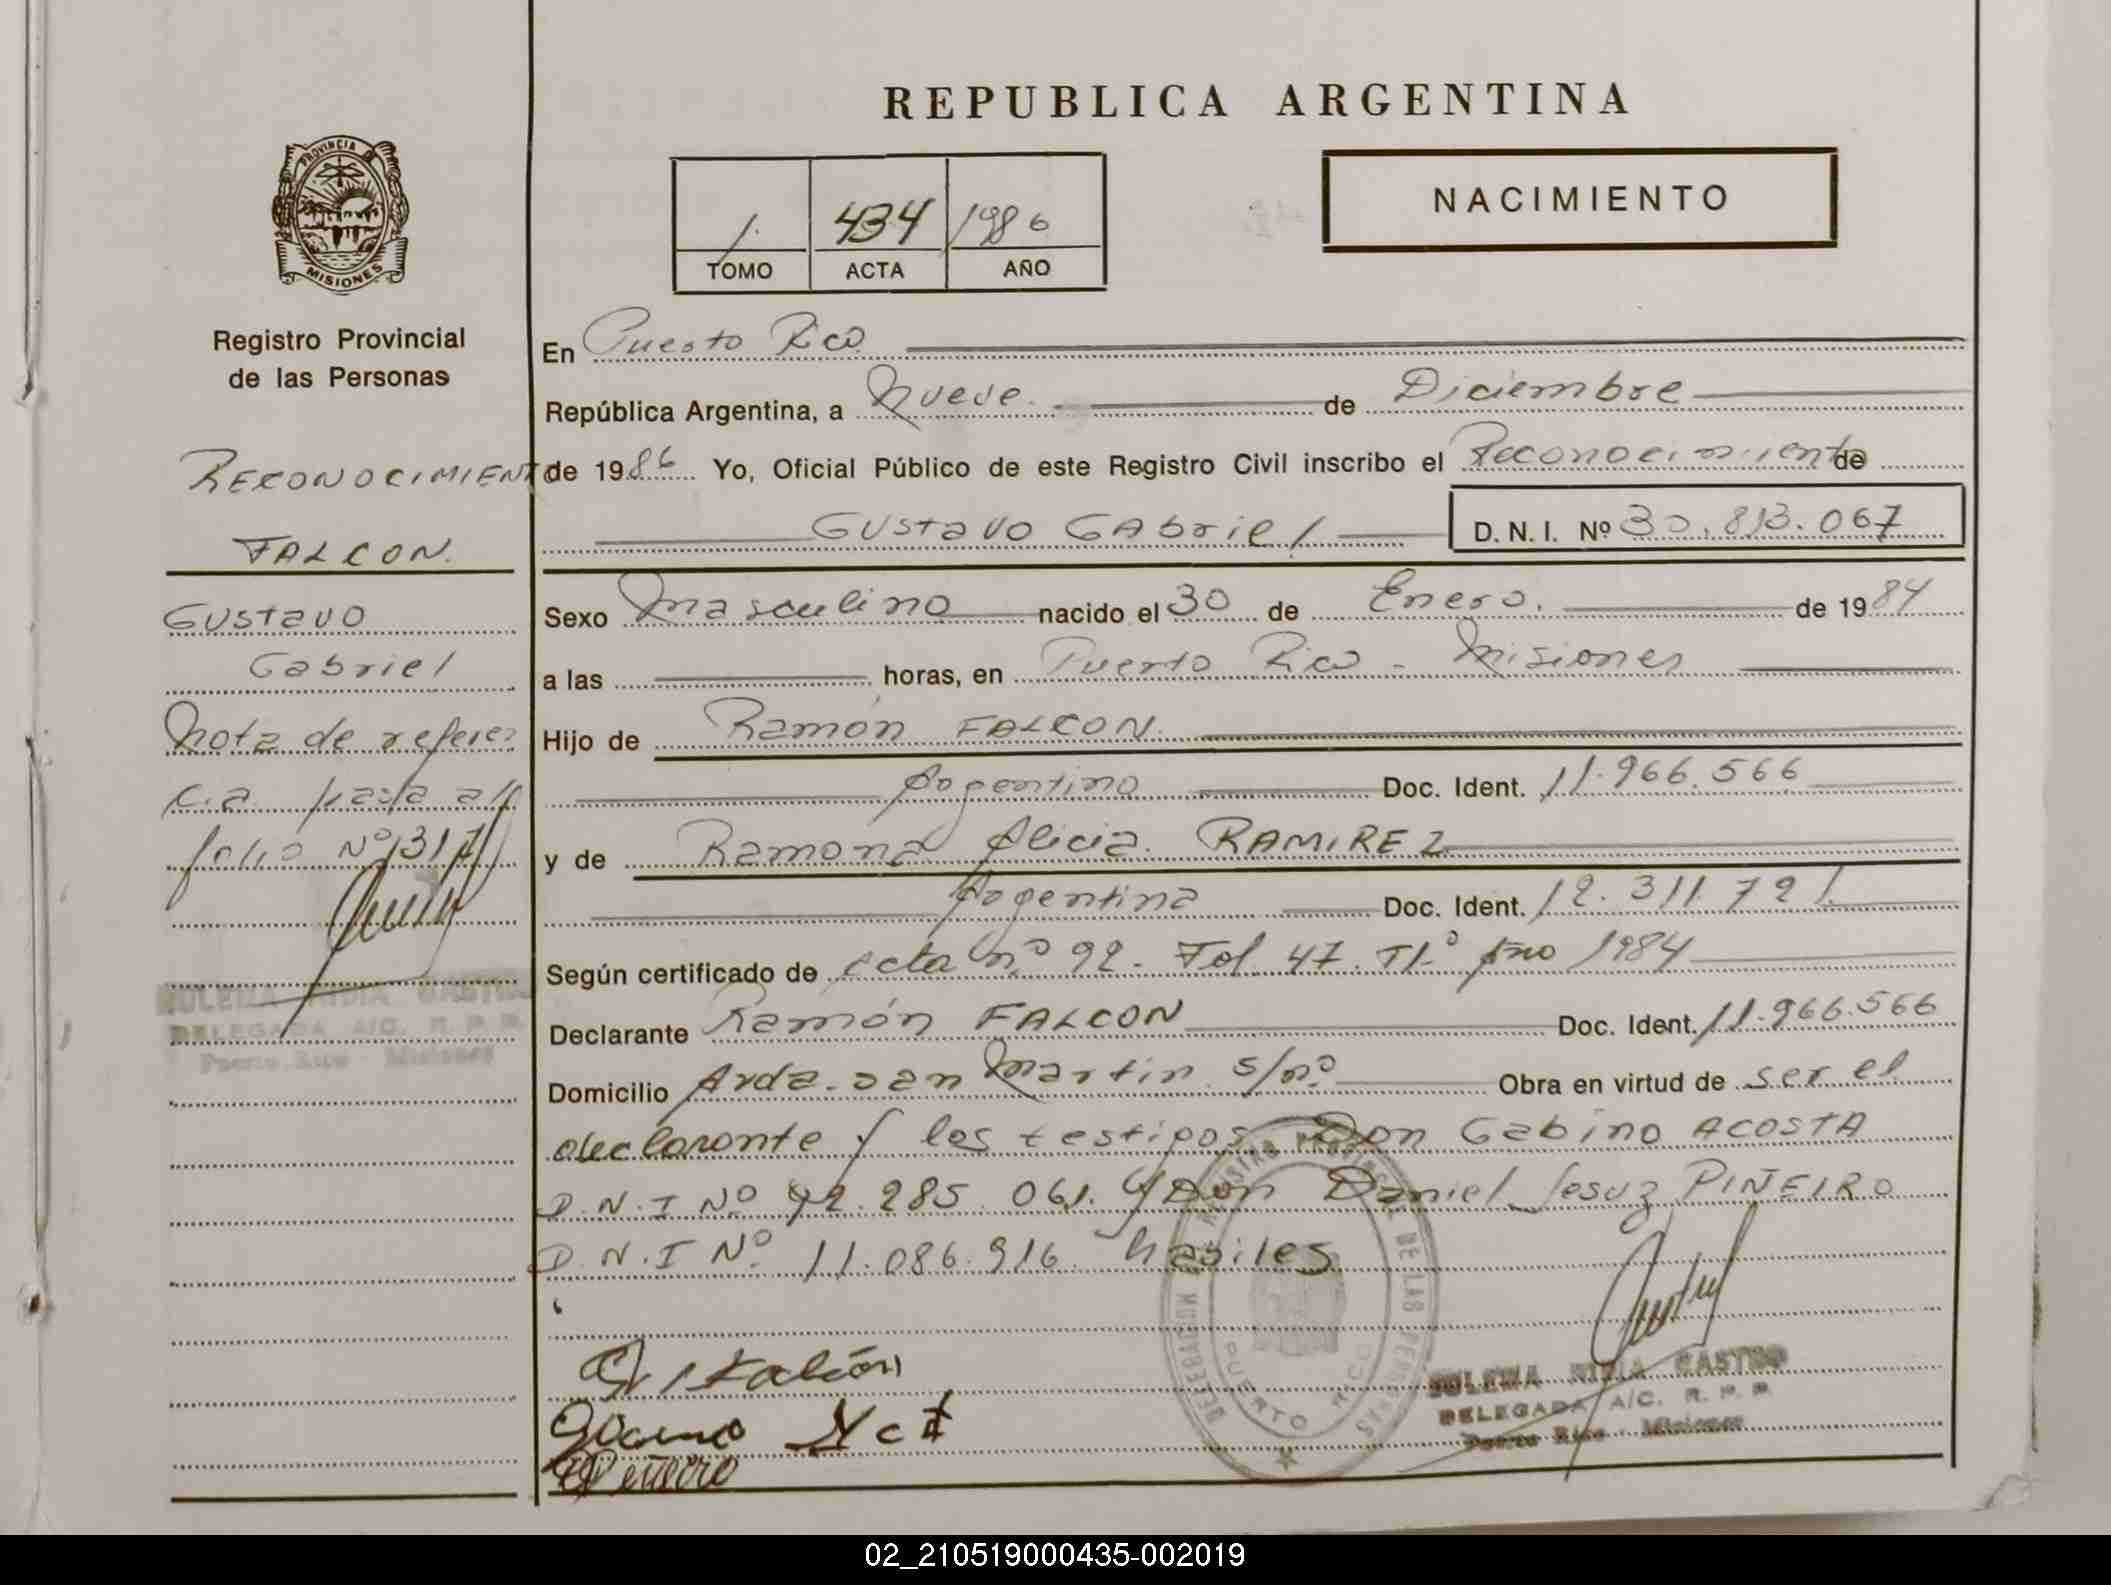 REPUBLICA ARGENTINA
NACIMIENTO
1. 434 1986
TOMO ACTA AÑO
PROVINCIA DE
MISIONES
Registro Provincial
de las Personas
RECONOCIMIENT
FALCON.
Gustavo
Gabriel
Nota de referen
c.a.
folio Nº 317
DELEGADA A/C. R. P. P.
Puerto Rico - Misiones
En Puerto Rico
República Argentina, a Nueve. de Diciembre
de 1986 Yo, Oficial Público de este Registro Civil inscribo el Reconocimiento de
Gustavo Gabriel D. N. I. Nº 30.813.067
Sexo Masculino nacido el 30 de Enero. de 1984
a las horas, en Puerto Rico - Misiones
Hijo de Ramón FALCON.
Argentino Doc. Ident. 11.966.566
y de Ramona Alicia. RAMIREZ
Argentina Doc. Ident. 12.311.721.
Según certificado de acta nº 92. Fol. 47. T1º Año 1984
Declarante Ramón FALCON Doc. Ident. 11.966.566
Domicilio Avda. san Martin s/nº Obra en virtud de ser el
declarante y los testigos Don Gabino ACOSTA
D.N.I Nº 92.285.061. y Don Daniel Jesuz PIÑEIRO
D.N.I Nº. 11.086.916. habiles
Falcón
REGISTRO PROVINCIAL DE LAS PERSONAS
PUERTO RICO
NIDIA CASTRO
DELEGADA A/C. R. P. P.
Puerto Rico - Misiones
02_210519000435-002019